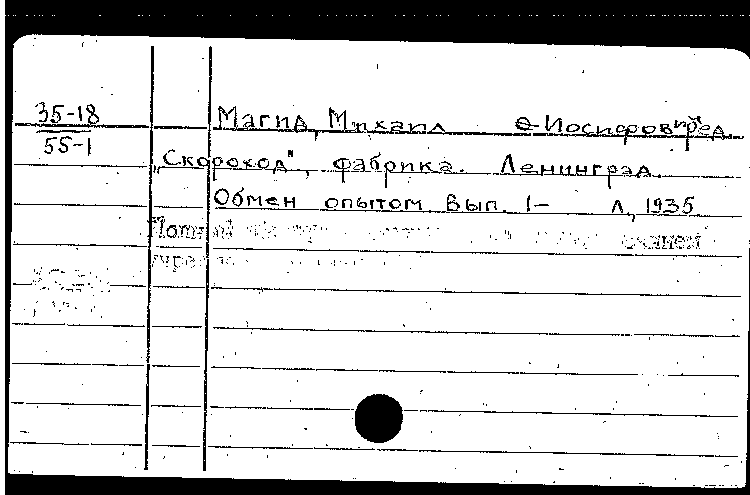 35-18
55-1
Магид, Михаил Иосифович, ред.
"Скороход", фабрика. Ленинград.
Обмен опытом. Вып. 1- Л., 1935